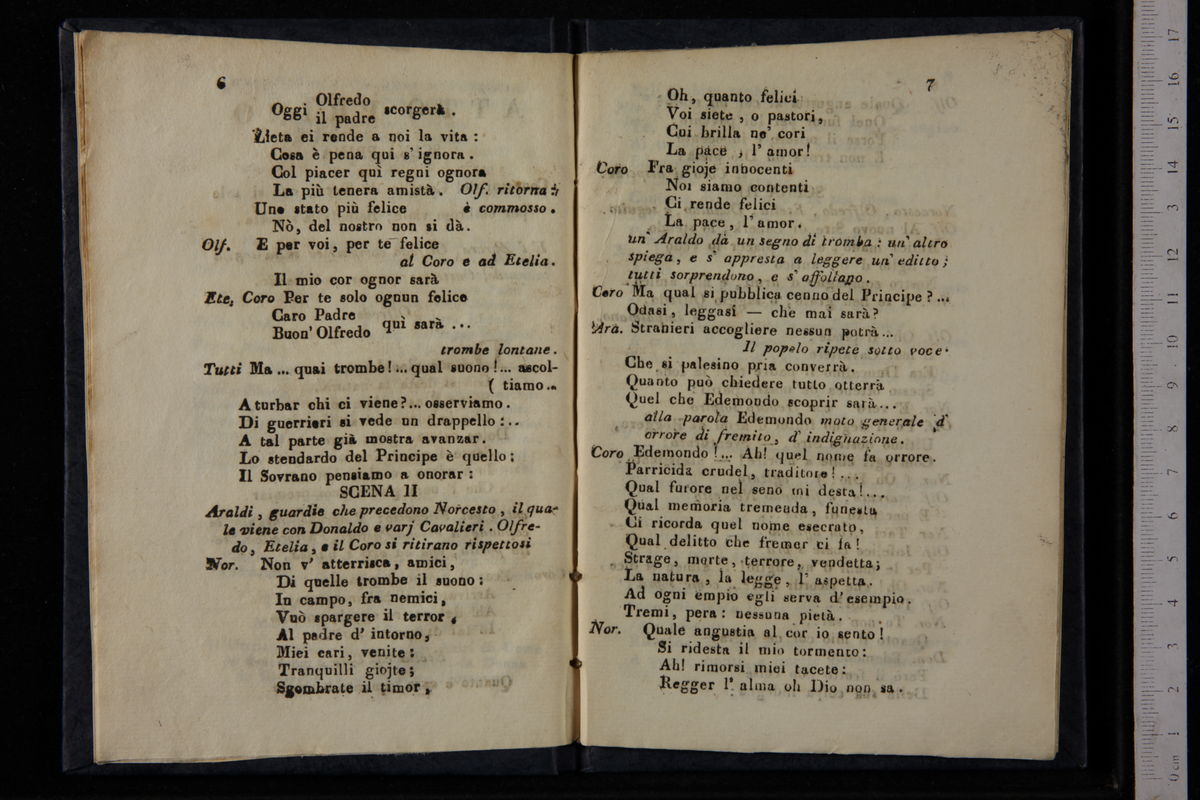 6
Oggi Olfredo scorgerà.
il padre
Lieta ei rende a noi la vita :
Cosa è pena qui s' ignora .
Col piacer quì regni ognora
La più tenera amistà . Olf. ritorna
Uno stato più felice è commosso .
Nò, del nostro non si dà .
Olf. E per voi, per te felice
al Coro e ad Etelia .
Il mio cor ognor sarà
Ete, Coro Per te solo ognun felice
Caro Padre quì sarà ...
Buon' Olfredo
trombe lontane .
Tutti Ma ... quai trombe! ... qual suono ! ... ascol-
( tiamo ..
A turbar chi ci viene? ... osserviamo .
Di guerrieri si vede un drappello : ..
A tal parte già mostra avanzar .
Lo stendardo del Principe è quello ;
Il Sovrano pensiamo a onorar :
SCENA II
Araldi , guardie che precedono Norcesto , il qua-
le viene con Donaldo e varj Cavalieri . Olfre-
do, Etelia , e il Coro si ritirano rispettosi
Nor. Non v' atterrisca, amici ,
Di quelle trombe il suono :
In campo, fra nemici,
Vuò spargere il terror ,
Al padre d' intorno,
Miei cari, venite :
Tranquilli giojte ;
Sgombrate il timor ,
7
Oh, quanto felici
Voi siete , o pastori,
Cui brilla ne' cori
La pace , l' amor!
Coro Fra gioje innocenti
Noi siamo contenti
Ci rende felici
La pace , l' amor .
un' Araldo dà un segno di tromba : un' altro
spiega, e s' appresta a leggere un' editto ;
tutti sorprendono , e s' affollano .
Coro Ma qual si pubblica cenno del Principe ? ...
Odasi, leggasi — che mai sarà?
Ara. Stranieri accogliere nessun potrà ...
Il popolo ripete sotto voce
Che si palesino pria converrà .
Quanto può chiedere tutto otterrà
Quel che Edemondo scoprir sarà ...
alla parola Edemondo moto generale d'
orrore di fremito, d' indignazione .
Coro Edemondo ! ... Ah! quel nome fa orrore .
Parricida crudel, traditore ! ...
Qual furore nel seno mi desta! ...
Qual memoria tremenda , funesta
Ci ricorda quel nome esecrato,
Qual delitto che fremer ci fa !
Strage , morte , terrore , vendetta ;
La natura , la legge , l' aspetta .
Ad ogni empio egli serva d' esempio .
Tremi, pera : nessuna pietà .
Nor. Quale angustia al cor io sento !
Si ridesta il mio tormento :
Ah! rimorsi miei tacete :
Regger l' alma oh Dio non sa .
0 cm 1 2 3 4 5 6 7 8 9 10 11 12 13 14 15 16 17